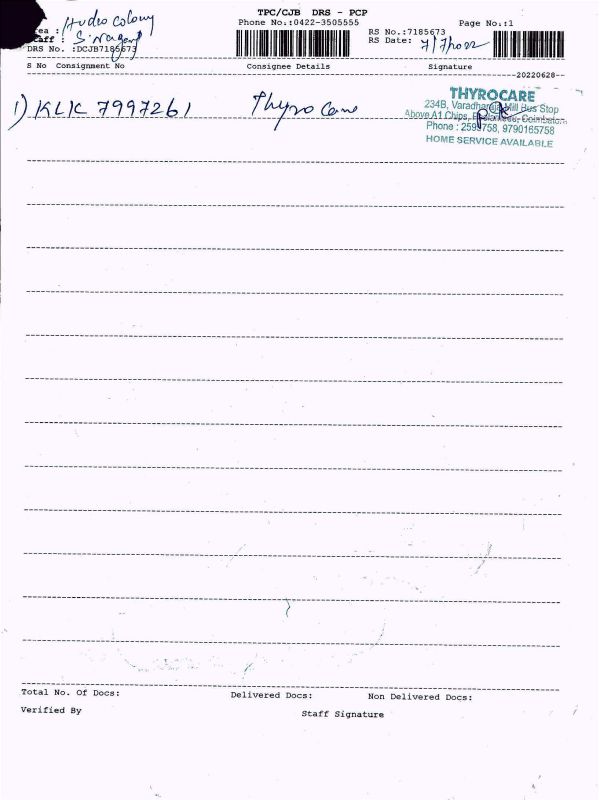 TPC/CJB DRS - PCP
Phone No.:0422-3505555 Page No.:1
rea : Hudco Colony
RS No.:7185673
aff :
RS Date: 7/7/2022
DRS No. :DCJB7185673
S No Consignment No Consignee Details Signature
--20220628--
1) KLK 7997261 Thyrocare
THYROCARE
234B, Varadharaja Mill Bus Stop
Above A1 Chips, Coimbatore
Phone : 2599758, 9790165758
HOME SERVICE AVAILABLE
Total No. Of Docs: Delivered Docs: Non Delivered Docs:
Verified By Staff Signature